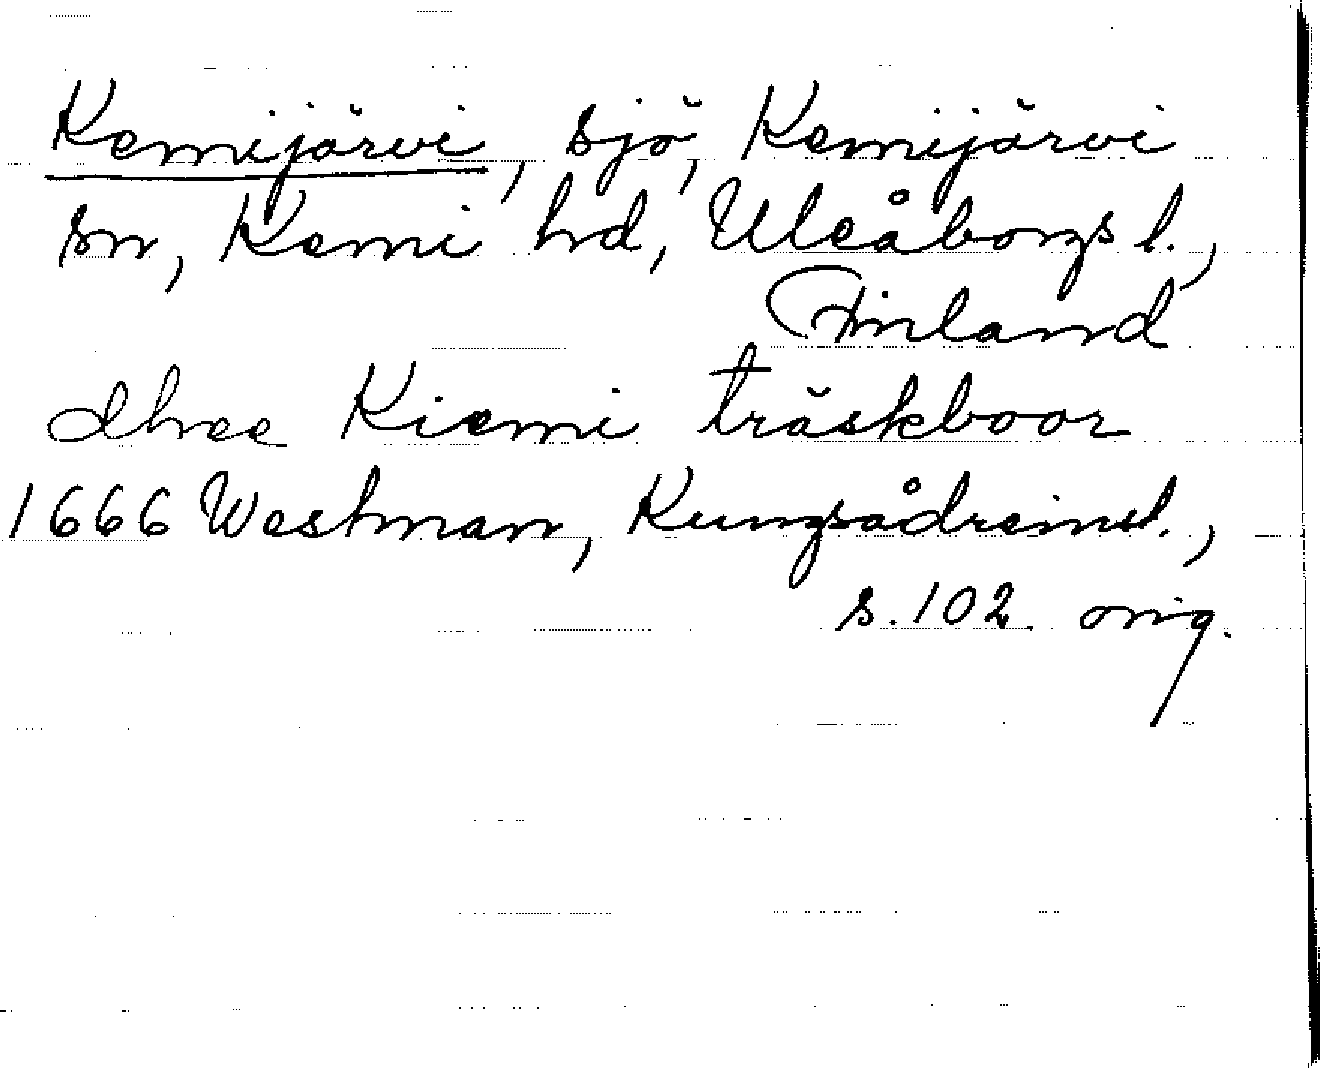 Kemijärvi, sjö, Kemijärvi
sn, Kemi hd, Uleåborgs l.,
Finland
dhee Kiemi träskboor
1666 Westman, Kungsådreund.,
s. 102. orig.